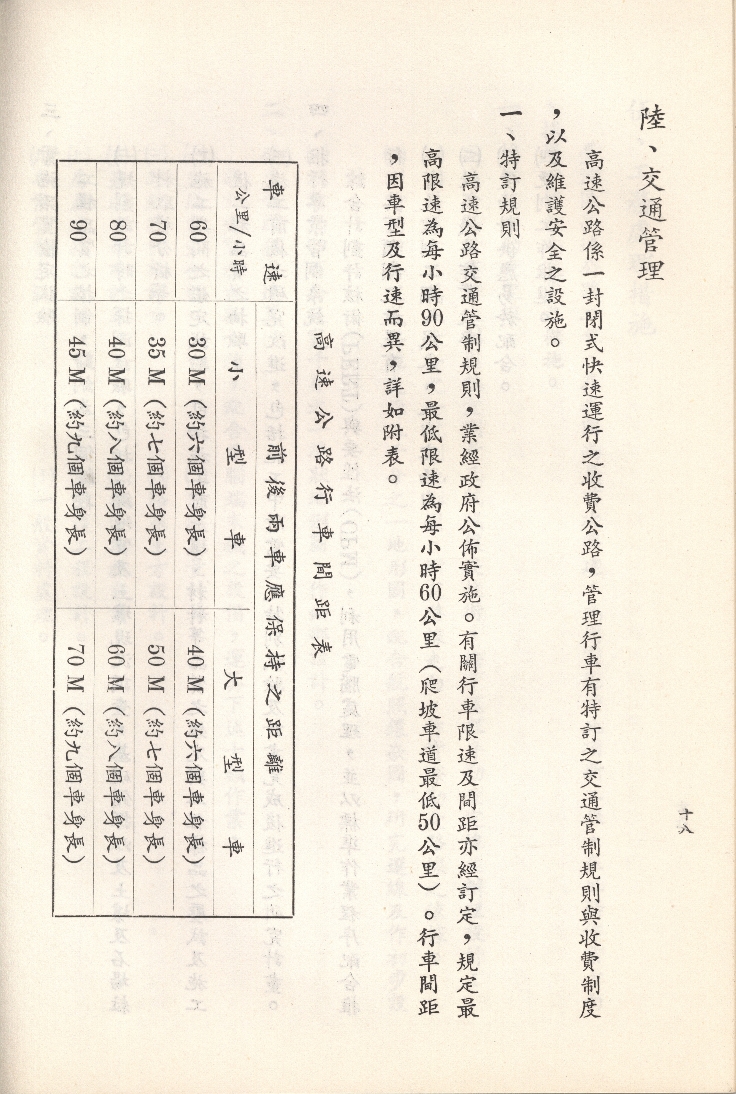 陸、交通管理
高速公路係一封閉式快速運行之收費公路，管理行車有特訂之交通管制規則與收費制度
，以及維護安全之設施。
一、特訂規則
高速公路交通管制規則，業經政府公佈實施。有關行車限速及間距亦經訂定，規定最
高限速為每小時90公里，最低限速為每小時60公里（爬坡車道最低50公里）。行車間距
，因車型及行速而異，詳如附表。
高速公路行車間距表
車速
公里/小時
前後兩車應保持之距離
小型車
大型車
60
30 M（約六個車身長）
40 M（約六個車身長）
70
35 M（約七個車身長）
50 M（約七個車身長）
80
40 M（約八個車身長）
60 M（約八個車身長）
90
45 M（約九個車身長）
70 M（約九個車身長）
十八